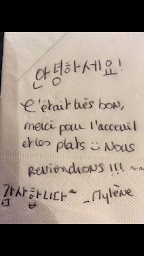 안녕하세요!
C'était très bon,
merci pour l'accueil
et les plats :) Nous
reviendrons !!! ~~
감사합니다~ _Mylène